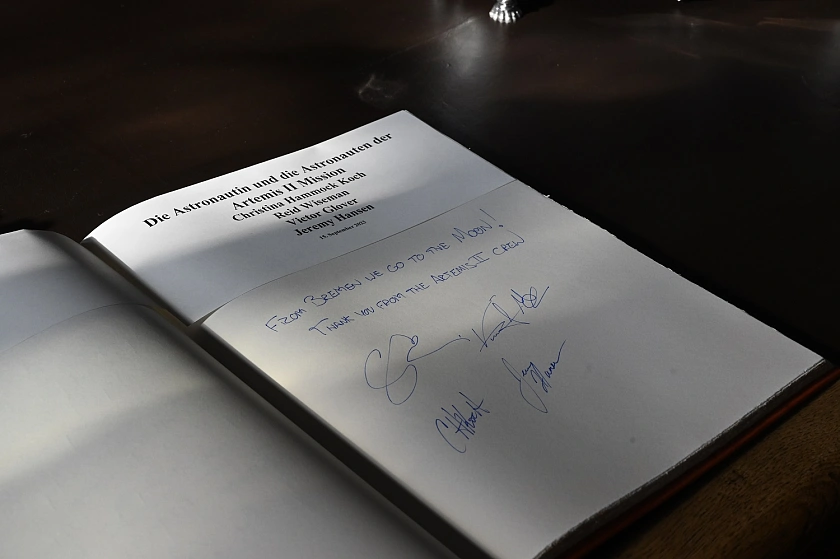 Die Astronautin und die Astronauten der
Artemis II Mission
Christina Hammock Koch
Reid Wiseman
Victor Glover
Jeremy Hansen
15. September 2023
FROM BREMEN WE GO TO THE MOON!
THANK YOU FROM THE ARTEMIS II CREW
CHKoch